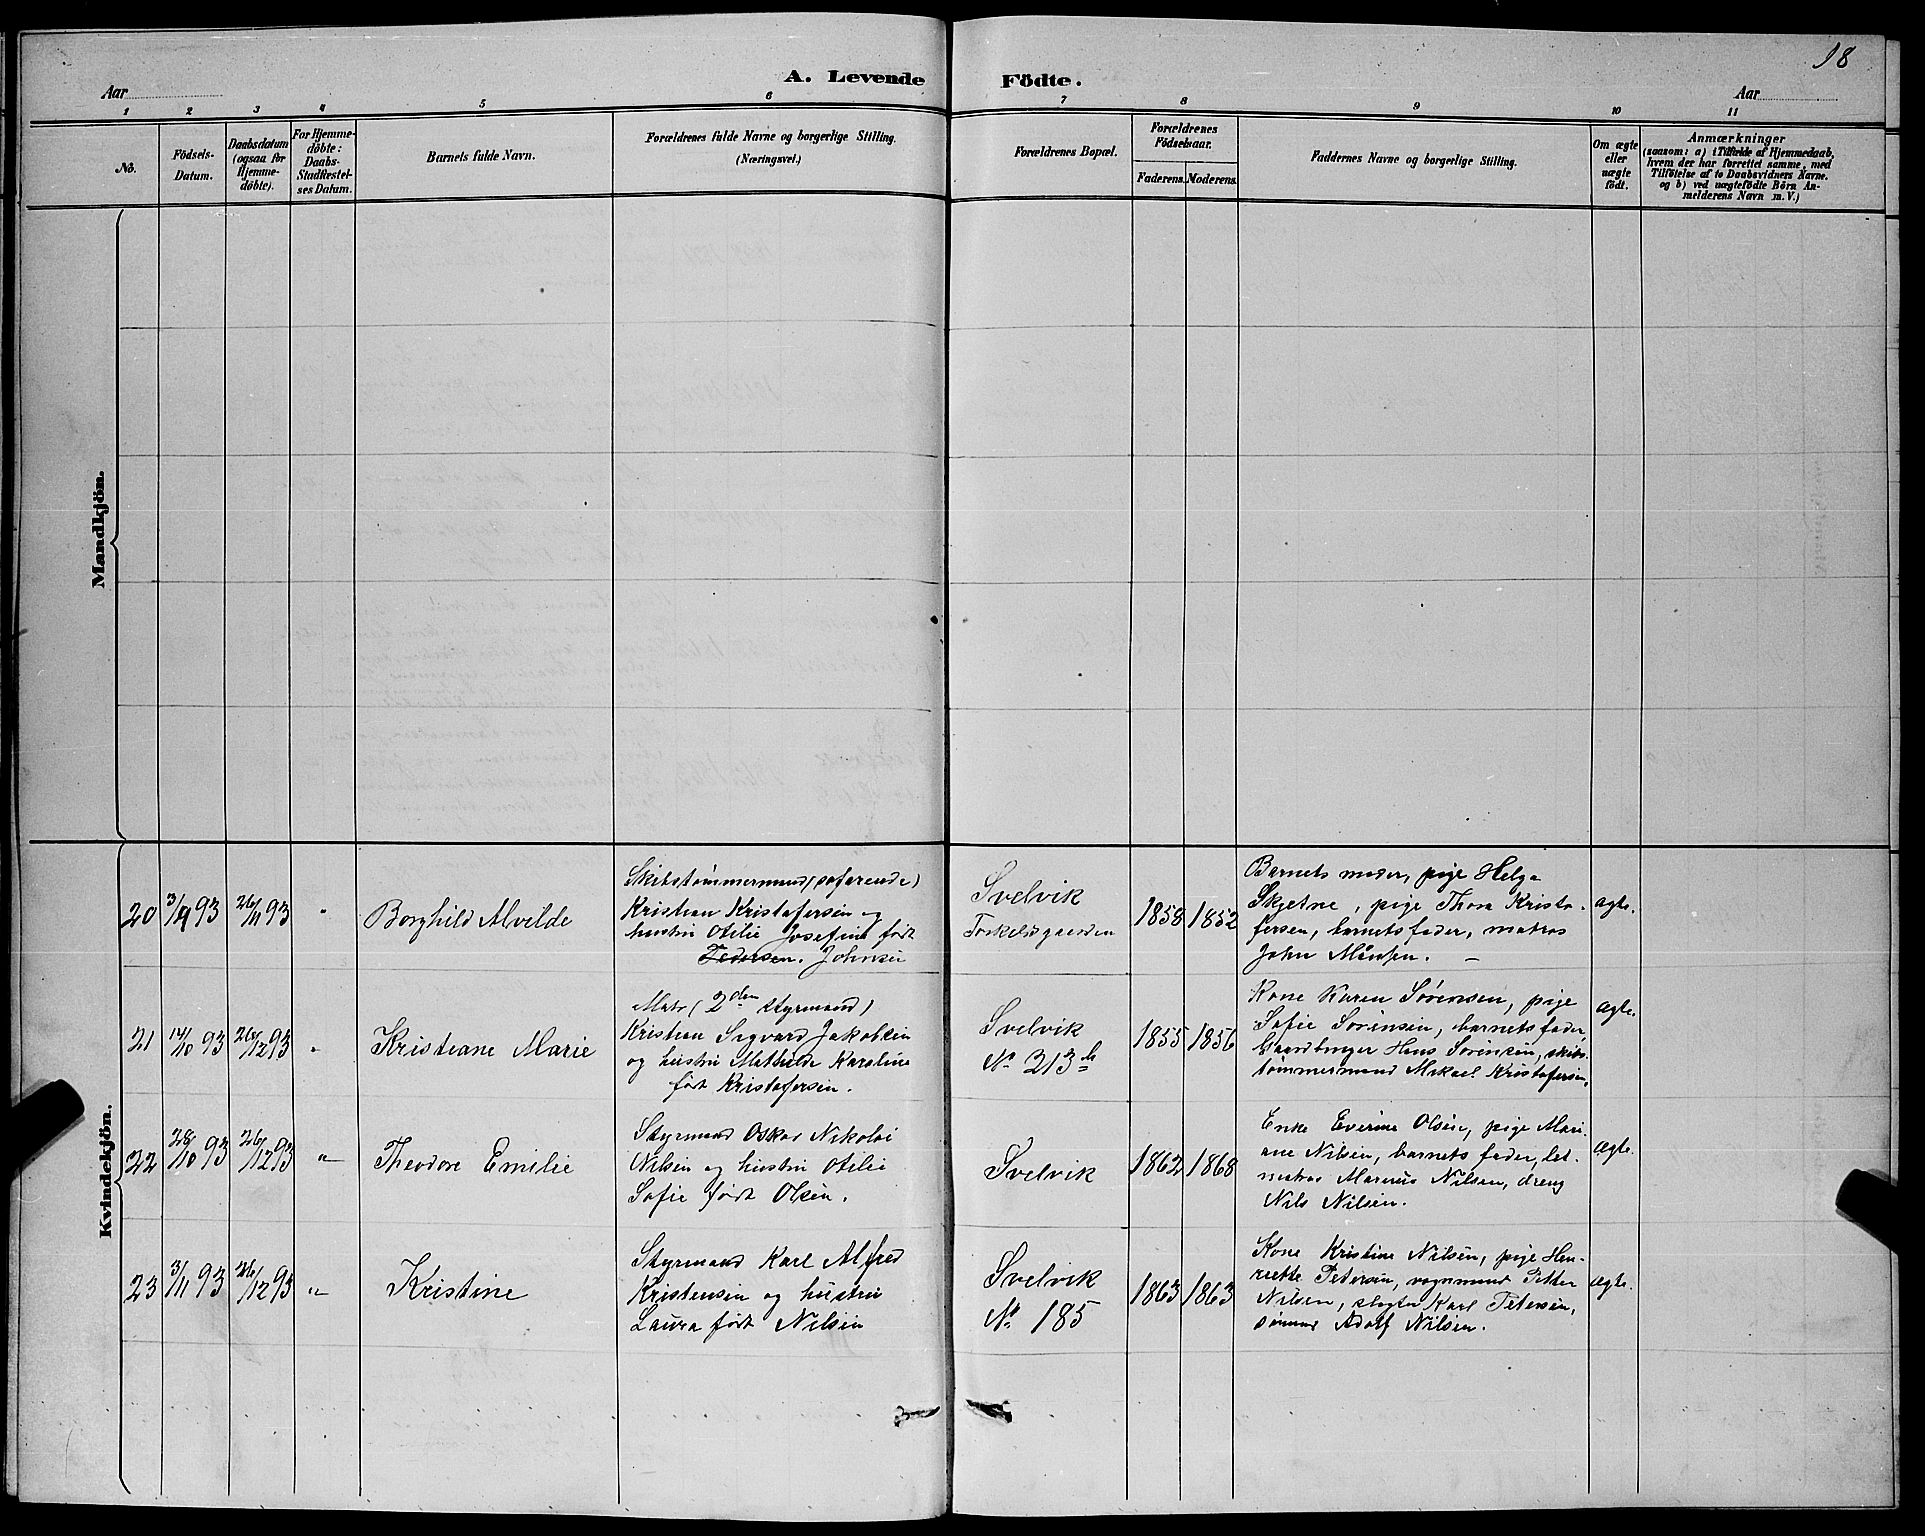 18
A. Levende Födte.
Aar
Aar
1 2 3 4 5 6 7 8 9 10 11
No.
Födsels-
Datum.
Daabsdatum
(ogsaa for
Hjemme-
döbte).
For Hjemme-
döbte:
Daabs-
Stadfæstel-
ses Datum.
Barnets fulde Navn.
Forældrenes fulde Navne og borgerlige Stilling.
(Næringsvei.)
Forældrenes Bopæl.
Forældrenes
Födselsaar.
Faderens. Moderens.
Faddernes Navne og borgerlige Stilling.
Om ægte
eller
uægte
födt.
Anmærkninger
(saasom: a) i Tilfælde af Hjemmedaab,
hvem der har forrettet samme, med
Tilföielse af to Daabsvidners Navne.
og b) ved uægtefödte Börn An-
melderens Navn m.V.)
Mandkjön.
Kvindekjön.
20 3/9 93 26/11 93 "
Borghild Alvilde
Skibstømmermand (søfarende)
Kristian Kristofersen og
hustru Otilie Josefine født
Pedersen. Johnsen
Svelvik
Torkelsgaarden
1858 1852
Barnets moder, pige Helga
Skjetne, pige Thora Kristo-
fersen, barnets fader, matros
John
ægte.
21 14/10 93 26/12 93 "
Kristiane Marie
Matr (2den styrmand)
Kristian Sigvard Jakobsen
og hustru Mathilde Karoline
født Kristofersen.
Svelvik
No 213b
1855 1856
Kone Karen Sørensen, pige
Sofie Sørensen, barnets fader,
Gaardbruger Hans Sørensen, skibs-
tømmermand Mikael Kristofersen,
ægte.
22 28/10 93 26/12 93 "
Theodore Emilie
Styrmand Oskar Nikolai
Nilsen og hustru Otilie
Sofie født Olsen.
Svelvik
1862 1868
Enke Everine Olsen, pige Mari-
ane Nilsen, barnets fader, let-
matros Marius Nilsen, dreng
Nils Nilsen.
ægte.
23 3/11 93 26/12 93 "
Kristine
Styrmand Karl Alfred
Kristensen og hustru
Laura født Nilsen
Svelvik
No 185
1863 1863
Kone Kristine Nilsen, pige Hen-
riette Petersen, vognmand Petter
Nilsen, slagter Karl Petersen,
sømand Adolf Nilsen.
ægte.